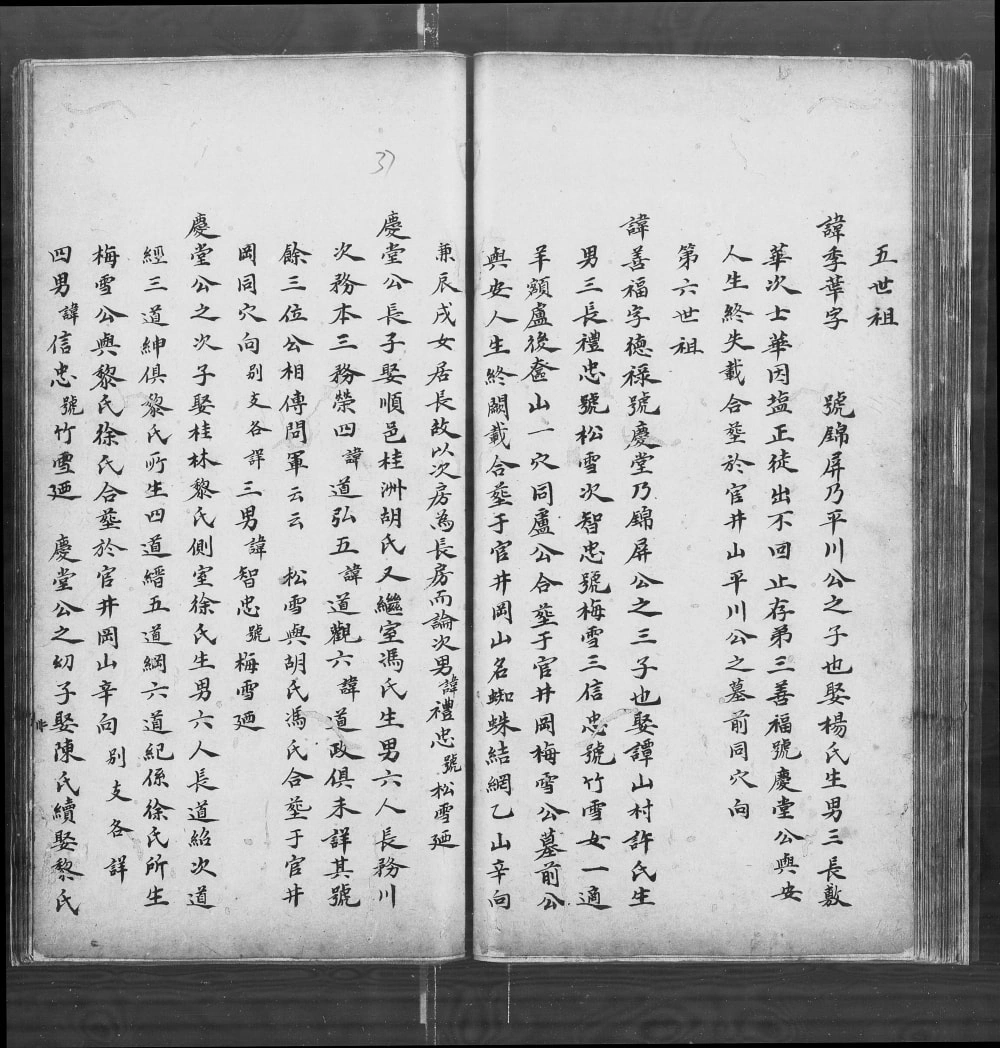 五世祖
諱季華字　號錦屏乃平川公之子也娶楊氏生男三長敷
華次士華因塩正徒出不回止存弟三善福號慶堂公與安
人生終失載合塟於官井山平川公之墓前同穴向
第六世祖
諱善福字德祿號慶堂乃錦屏公之三子也娶譚山村許氏生
男三長禮忠號松雪次智忠號梅雪三信忠號竹雪女一適
羊額盧後奩山一穴同盧公合塟于官井岡梅雪公墓前公
與安人生終闕載合塟于官井岡山名蜘蛛結網乙山辛向
兼辰戌女居長故以次房為長房而論次男諱禮忠號松雪廼
慶堂公長子娶順邑桂洲胡氏又繼室馮氏生男六人長務川
次務本三務榮四諱道弘五諱道觀六諱道政俱未詳其號
餘三位公相傳問軍云云　松雪與胡氏馮氏合塟于官井
岡同穴向別支各詳三男諱智忠號梅雪廼
慶堂公之次子娶桂林黎氏側室徐氏生男六人長道紹次道
經三道紳俱黎氏所生四道縉五道綱六道紀係徐氏所生
梅雪公與黎氏徐氏合塟於官井岡山辛向別支各詳
四男諱信忠號竹雪廼　慶堂公之幼子娶陳氏續娶黎氏
37